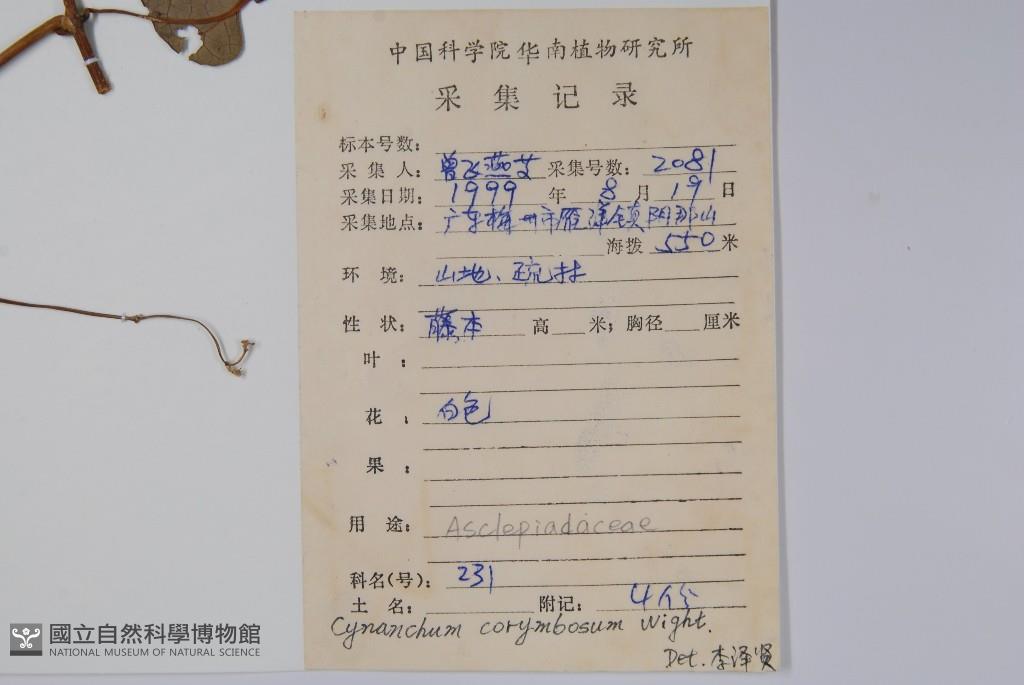 中国科学院华南植物研究所
采集记录
标本号数:
采集人: 曾飞燕 采集号数: 2081
采集日期: 1999年8月19日
采集地点: 广东梅州市雁洋镇阴那山
海拨 550 米
环境: 山地、疏林
性状: 藤本 高 米; 胸径 厘米
叶:
花: 白色
果:
用途: Asclepiadaceae
科名(号): 231
土名: 附记: 4份
Cynanchum corymbosum Wight.
Det. 李泽贤
國立自然科學博物館
NATIONAL MUSEUM OF NATURAL SCIENCE